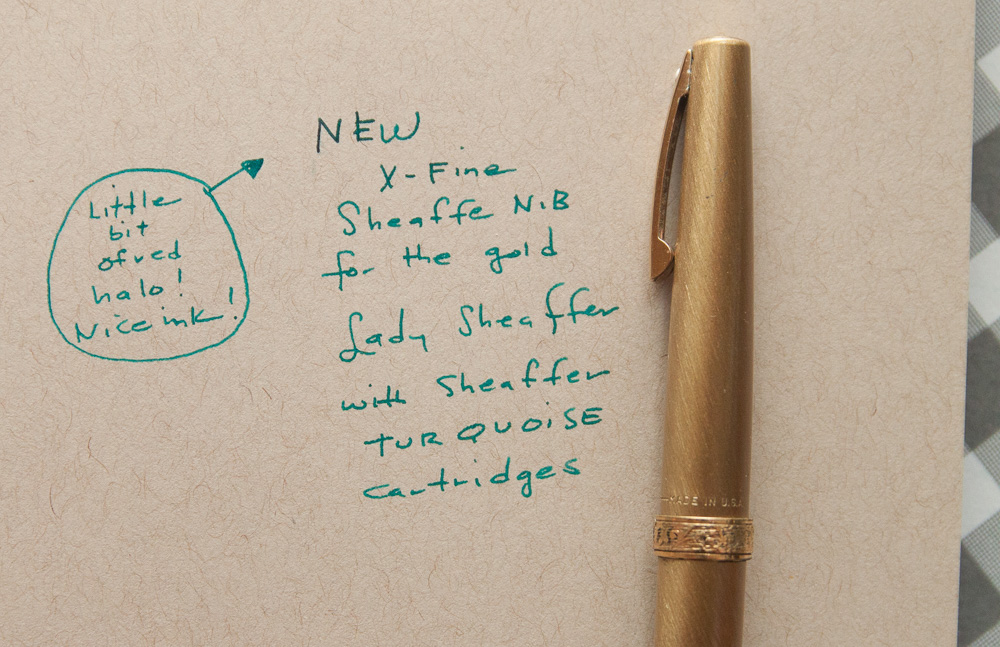 NEW
X-Fine
Sheaffe NiB
for the gold
Lady Sheaffer
with Sheaffer
TURQUOiSE
Cartridges
Little
bit
of red
halo!
Nice ink!
MADE IN U.S.A